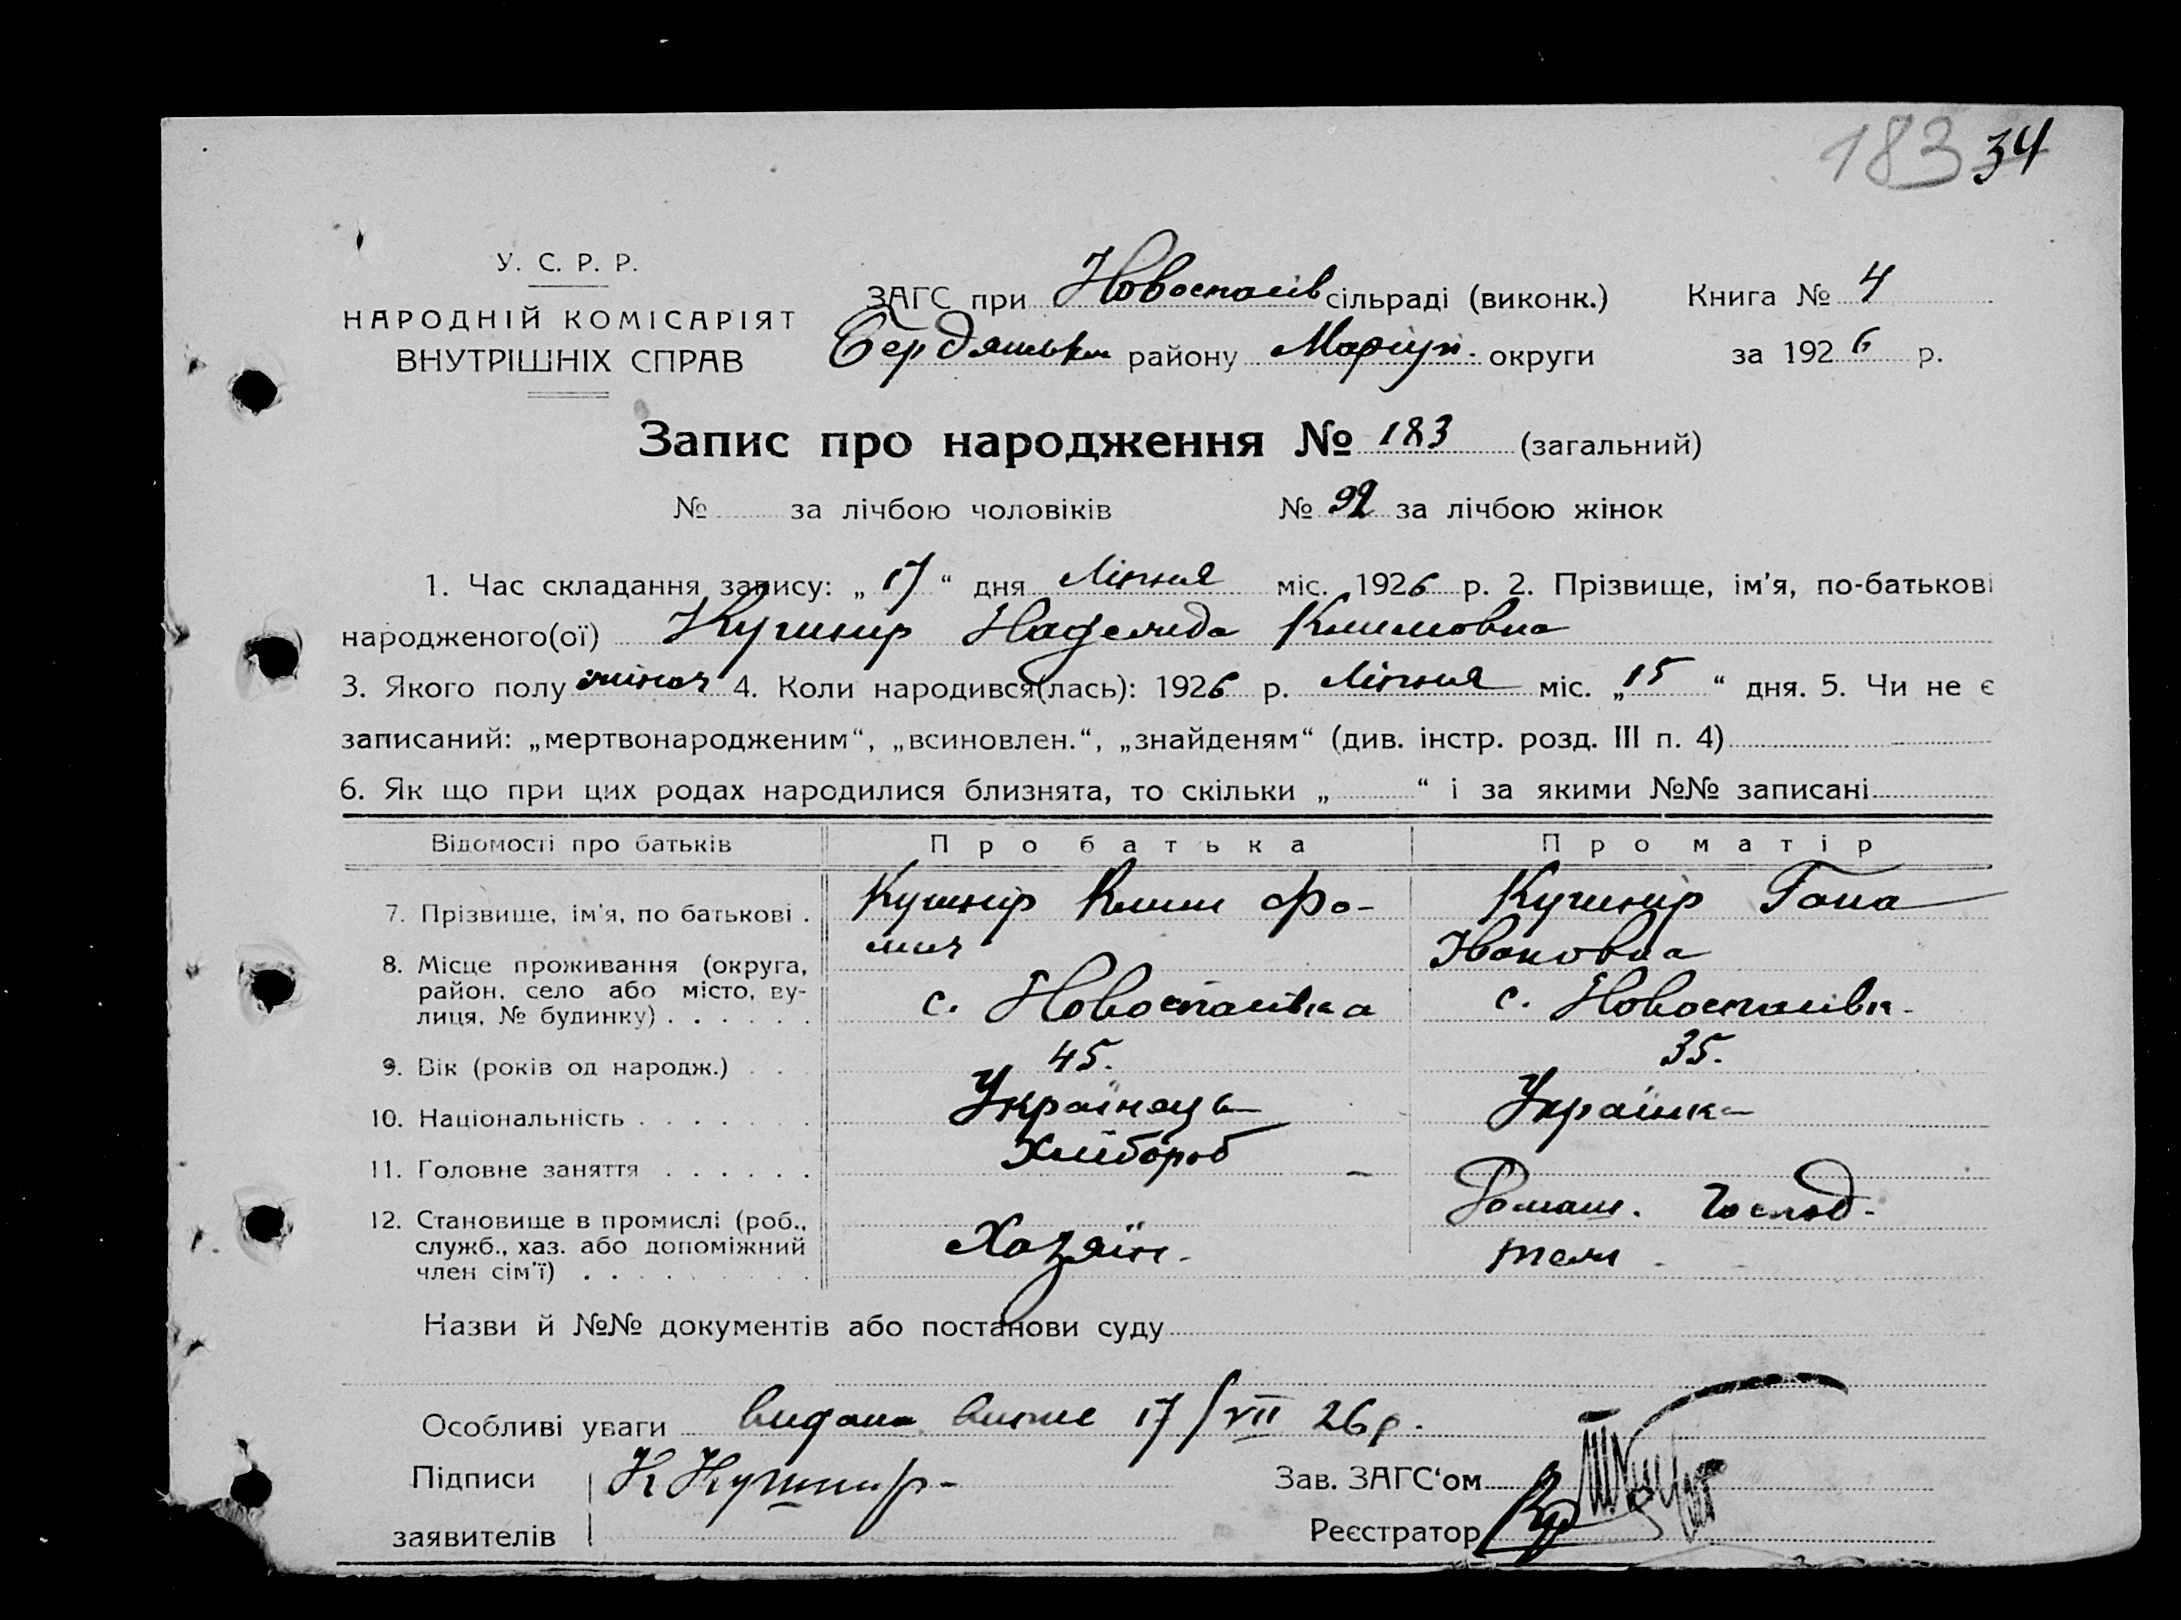 183 34
У. С. Р. Р.
НАРОДНІЙ КОМІСАРІЯТ
ВНУТРІШНІХ СПРАВ
ЗАГС при Новоспасів сільраді (виконк.) Книга № 4
Бердянськ району Маріуп. округи за 1926 р.
Запис про народження № 183 (загальний)
№ за лічбою чоловіків № 92 за лічбою жінок
1. Час складання запису: „ 17 “ дня Липня міс. 1926 р. 2. Прізвище, ім’я, по-батькові
народженого(ої) Кушнир Надежда Климовна
3. Якого полу жіноч 4. Коли народився(лась): 1926 р. Липня міс. „ 15 “ дня. 5. Чи не є
записаний: „мертвонародженим“, „всиновлен.“, „знайденям“ (див. інстр. розд. III п. 4)
6. Як що при цих родах народилися близнята, то скільки „ “ і за якими №№ записані
Відомості про батьків Про батька Про матір
7. Прізвище, ім’я, по батькові . Кушнир Клим Фо- Кушнир Гана
мич Івановна
8. Місце проживання (округа,
район, село або місто, ву-
лиця, № будинку) . . . . . . с. Новоспасівка с. Новоспасівк-
9. Вік (років од народж.) . . . 45. 35.
10. Національність . . . . . . . Українець Українка
11. Головне заняття . . . . . . Хлібороб –
12. Становище в промислі (роб.,
служб., хаз. або допоміжний
член сім’ї) . . . . . . . . . Хазяїн. Домаш. Господ-
Назви й №№ документів або постанови суду
Особливі уваги видана випис 17/VII 26 р.
Підписи К Кушнир- Зав. ЗАГС‘ом
заявителів Реєстратор